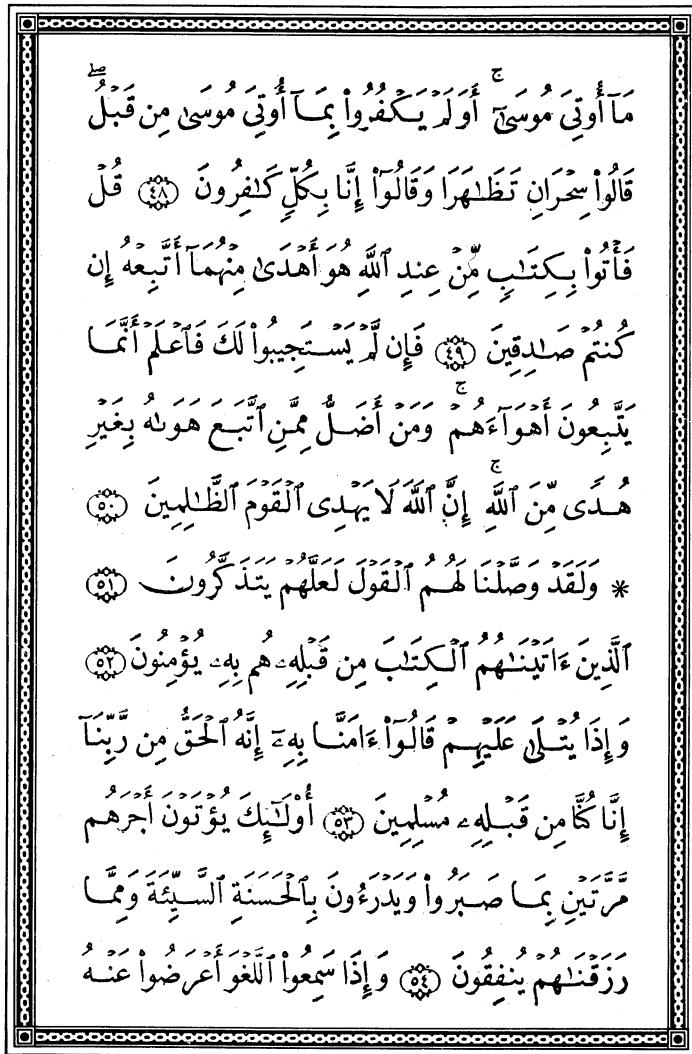 مَآ أُوتِيَ مُوسَىٰٓ ۚ أَوَلَمْ يَكْفُرُوا۟ بِمَآ أُوتِيَ مُوسَىٰ مِن قَبْلُ ۖ
قَالُوا۟ سِحْرَانِ تَظَـٰهَرَا وَقَالُوٓا۟ إِنَّا بِكُلٍّ كَـٰفِرُونَ ﴿٤٨﴾ قُلْ
فَأْتُوا۟ بِكِتَـٰبٍ مِّنْ عِندِ ٱللَّهِ هُوَ أَهْدَىٰ مِنْهُمَآ أَتَّبِعْهُ إِن
كُنتُمْ صَـٰدِقِينَ ﴿٤٩﴾ فَإِن لَّمْ يَسْتَجِيبُوا۟ لَكَ فَٱعْلَمْ أَنَّمَا
يَتَّبِعُونَ أَهْوَآءَهُمْ ۚ وَمَنْ أَضَلُّ مِمَّنِ ٱتَّبَعَ هَوَىٰهُ بِغَيْرِ
هُدًى مِّنَ ٱللَّهِ ۚ إِنَّ ٱللَّهَ لَا يَهْدِى ٱلْقَوْمَ ٱلظَّـٰلِمِينَ ﴿٥٠﴾
* وَلَقَدْ وَصَّلْنَا لَهُمُ ٱلْقَوْلَ لَعَلَّهُمْ يَتَذَكَّرُونَ ﴿٥١﴾
ٱلَّذِينَ ءَاتَيْنَـٰهُمُ ٱلْكِتَـٰبَ مِن قَبْلِهِۦ هُم بِهِۦ يُؤْمِنُونَ ﴿٥٢﴾
وَإِذَا يُتْلَىٰ عَلَيْهِمْ قَالُوٓا۟ ءَامَنَّا بِهِۦٓ إِنَّهُ ٱلْحَقُّ مِن رَّبِّنَآ
إِنَّا كُنَّا مِن قَبْلِهِۦ مُسْلِمِينَ ﴿٥٣﴾ أُو۟لَـٰٓئِكَ يُؤْتَوْنَ أَجْرَهُم
مَّرَّتَيْنِ بِمَا صَبَرُوا۟ وَيَدْرَءُونَ بِٱلْحَسَنَةِ ٱلسَّيِّئَةَ وَمِمَّا
رَزَقْنَـٰهُمْ يُنفِقُونَ ﴿٥٤﴾ وَإِذَا سَمِعُوا۟ ٱللَّغْوَ أَعْرَضُوا۟ عَنْهُ